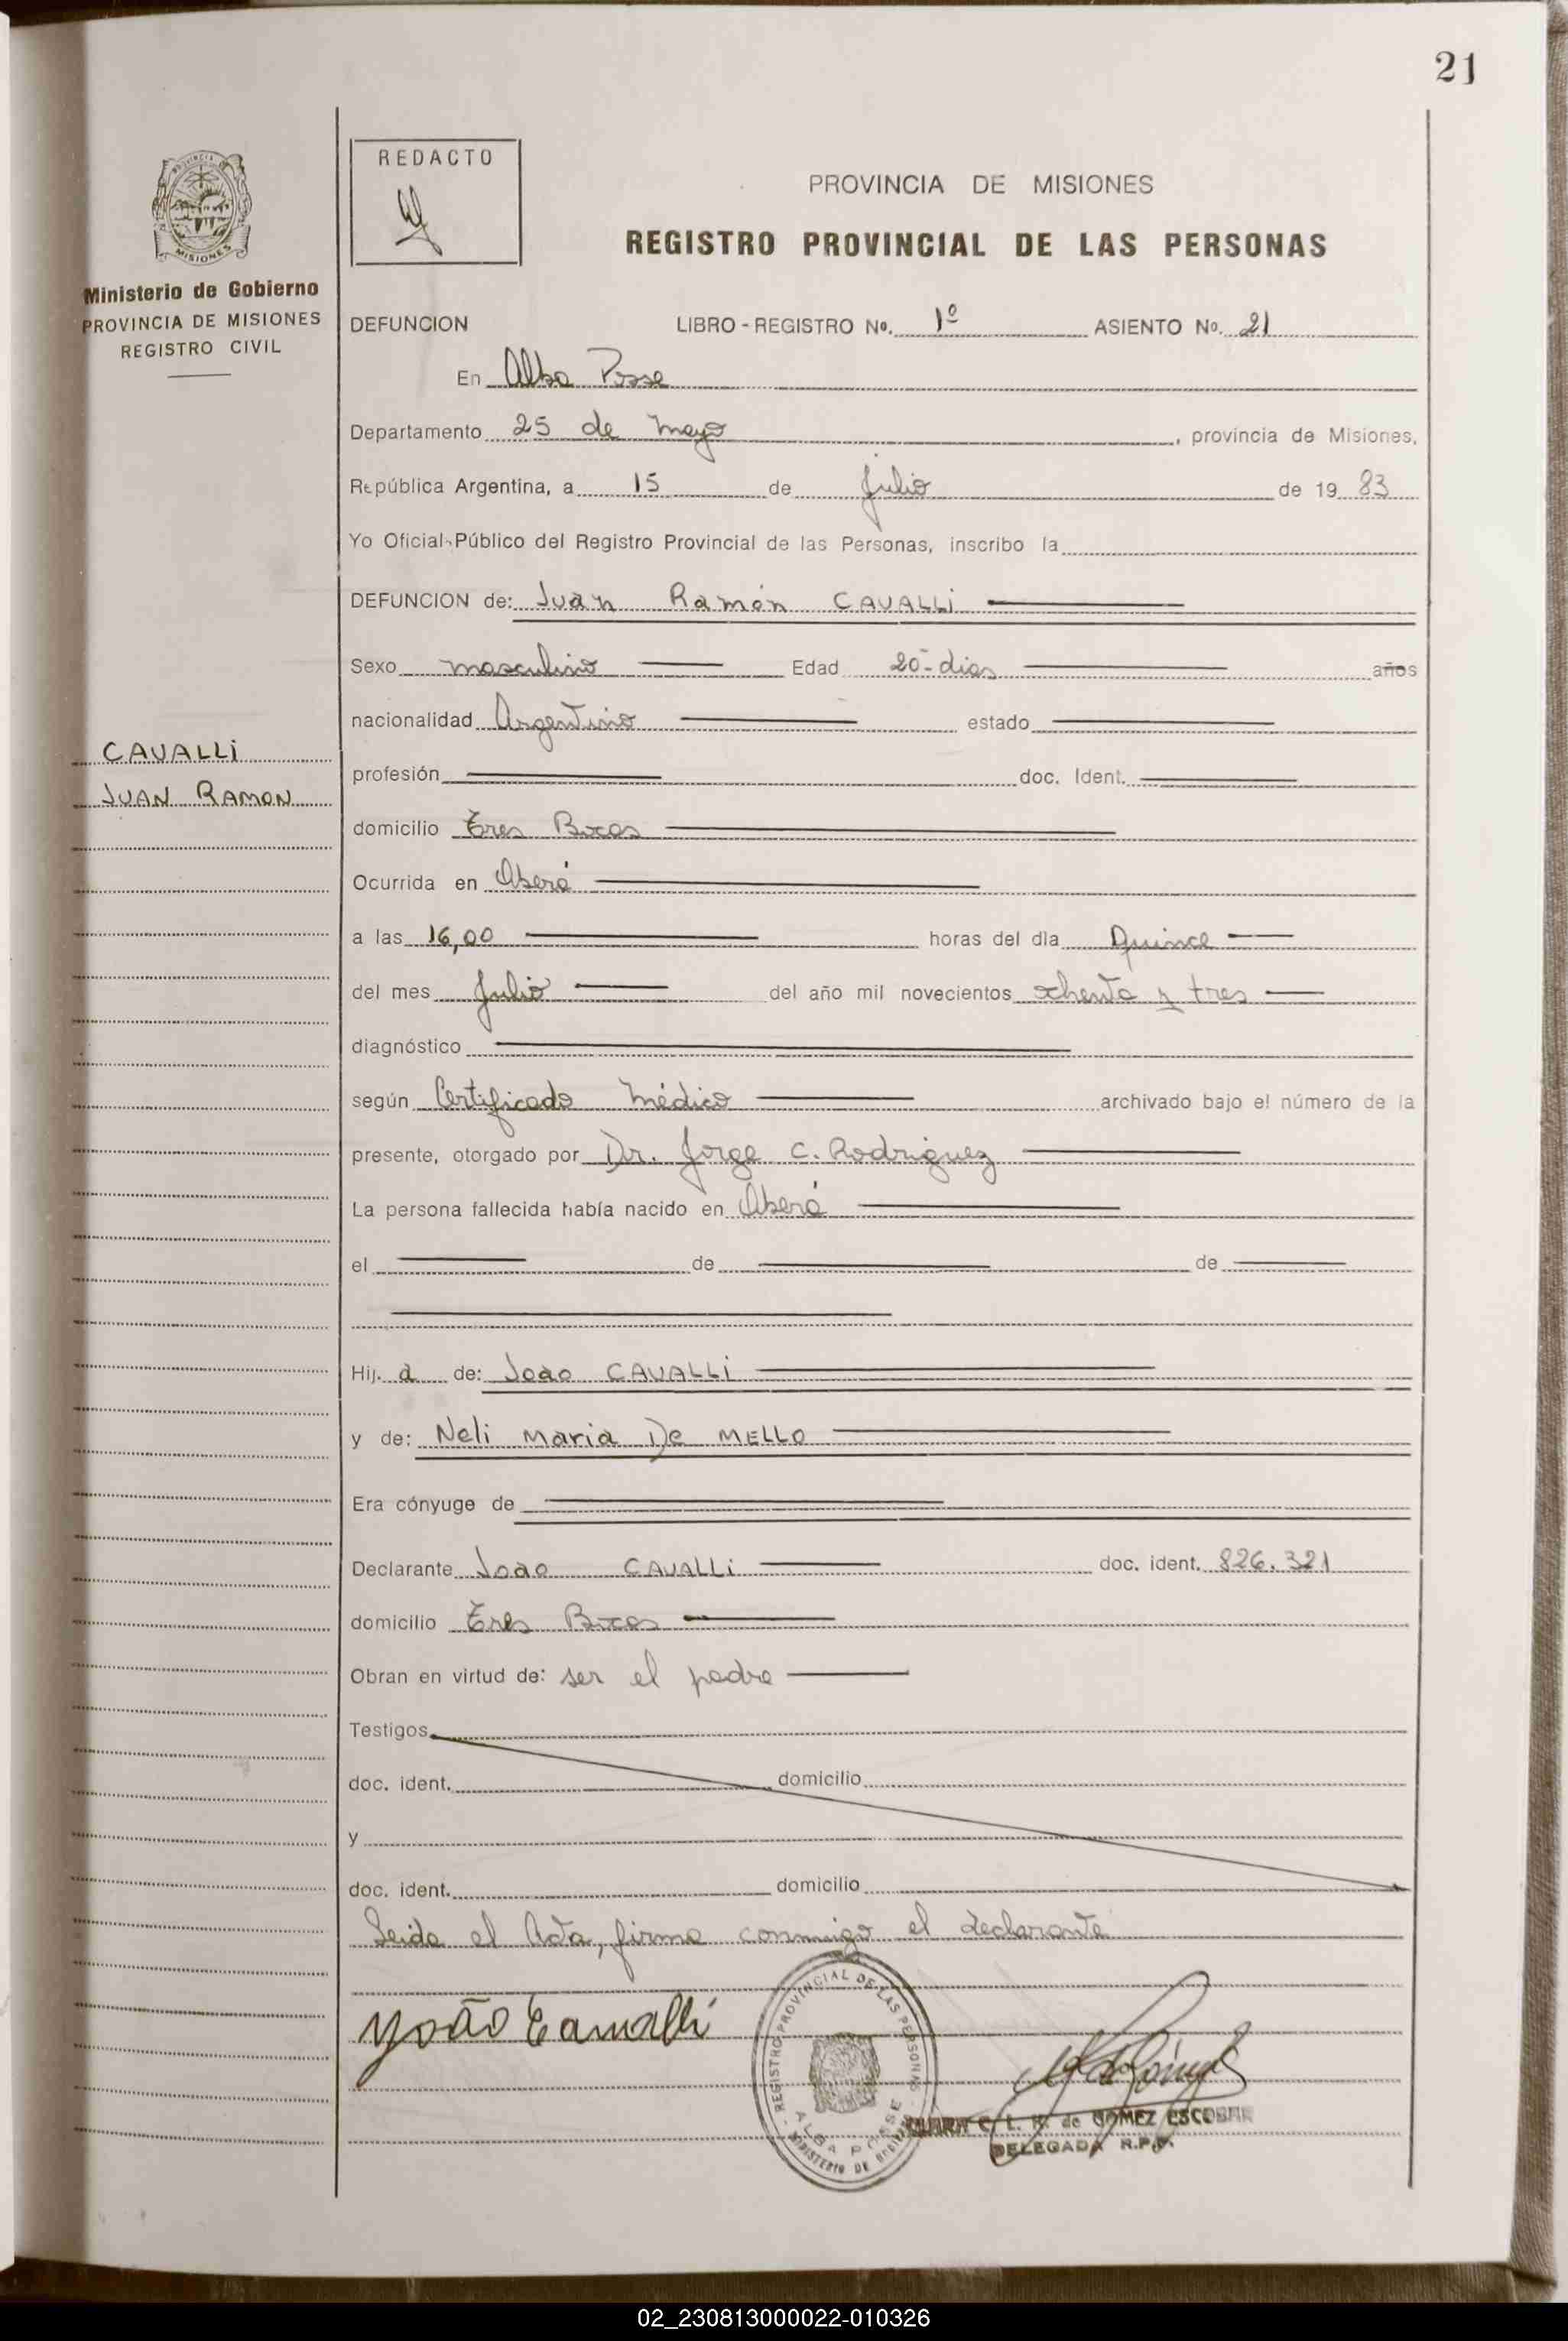 21
REDACTO
PROVINCIA DE MISIONES
REGISTRO PROVINCIAL DE LAS PERSONAS
MISIONES
Ministerio de Gobierno
PROVINCIA DE MISIONES
REGISTRO CIVIL
DEFUNCION LIBRO-REGISTRO Nº. 1º ASIENTO No. 21
En Alba Posse
Departamento 25 de Mayo, provincia de Misiones,
República Argentina, a 15 de Julio de 19 83
Yo Oficial Público del Registro Provincial de las Personas, inscribo la
DEFUNCION de: Juan Ramón CAVALLi
Sexo masculino Edad 20 dias años
nacionalidad Argentino estado
CAVALLi
JUAN RAMON
profesión doc. Ident.
domicilio Tres Bocas
Ocurrida en Oberá
a las 16,00 horas del día Quince
del mes Julio del año mil novecientos ochenta y tres
diagnóstico
según Certificado Médico archivado bajo el número de la
presente, otorgado por Dr. Jorge C. Rodriguez
La persona fallecida había nacido en Oberá
el de de
Hij. o de: Joao CAVALLi
y de: Neli Maria De MELLO
Era cónyuge de
Declarante Joao CAVALLi doc. ident. 826.321
domicilio Tres Bocas
Obran en virtud de: ser el padre
Testigos
doc. ident. domicilio
y
doc. ident. domicilio
Leida el Acta, firma conmigo el declarante
João Cavalli
REGISTRO PROVINCIAL DE LAS PERSONAS
ALBA POSSE
MINISTERIO DE GOBIERNO
CLARA C. L. R. de GOMEZ ESCOBAR
DELEGADA R.P.P.
02_230813000022-010326